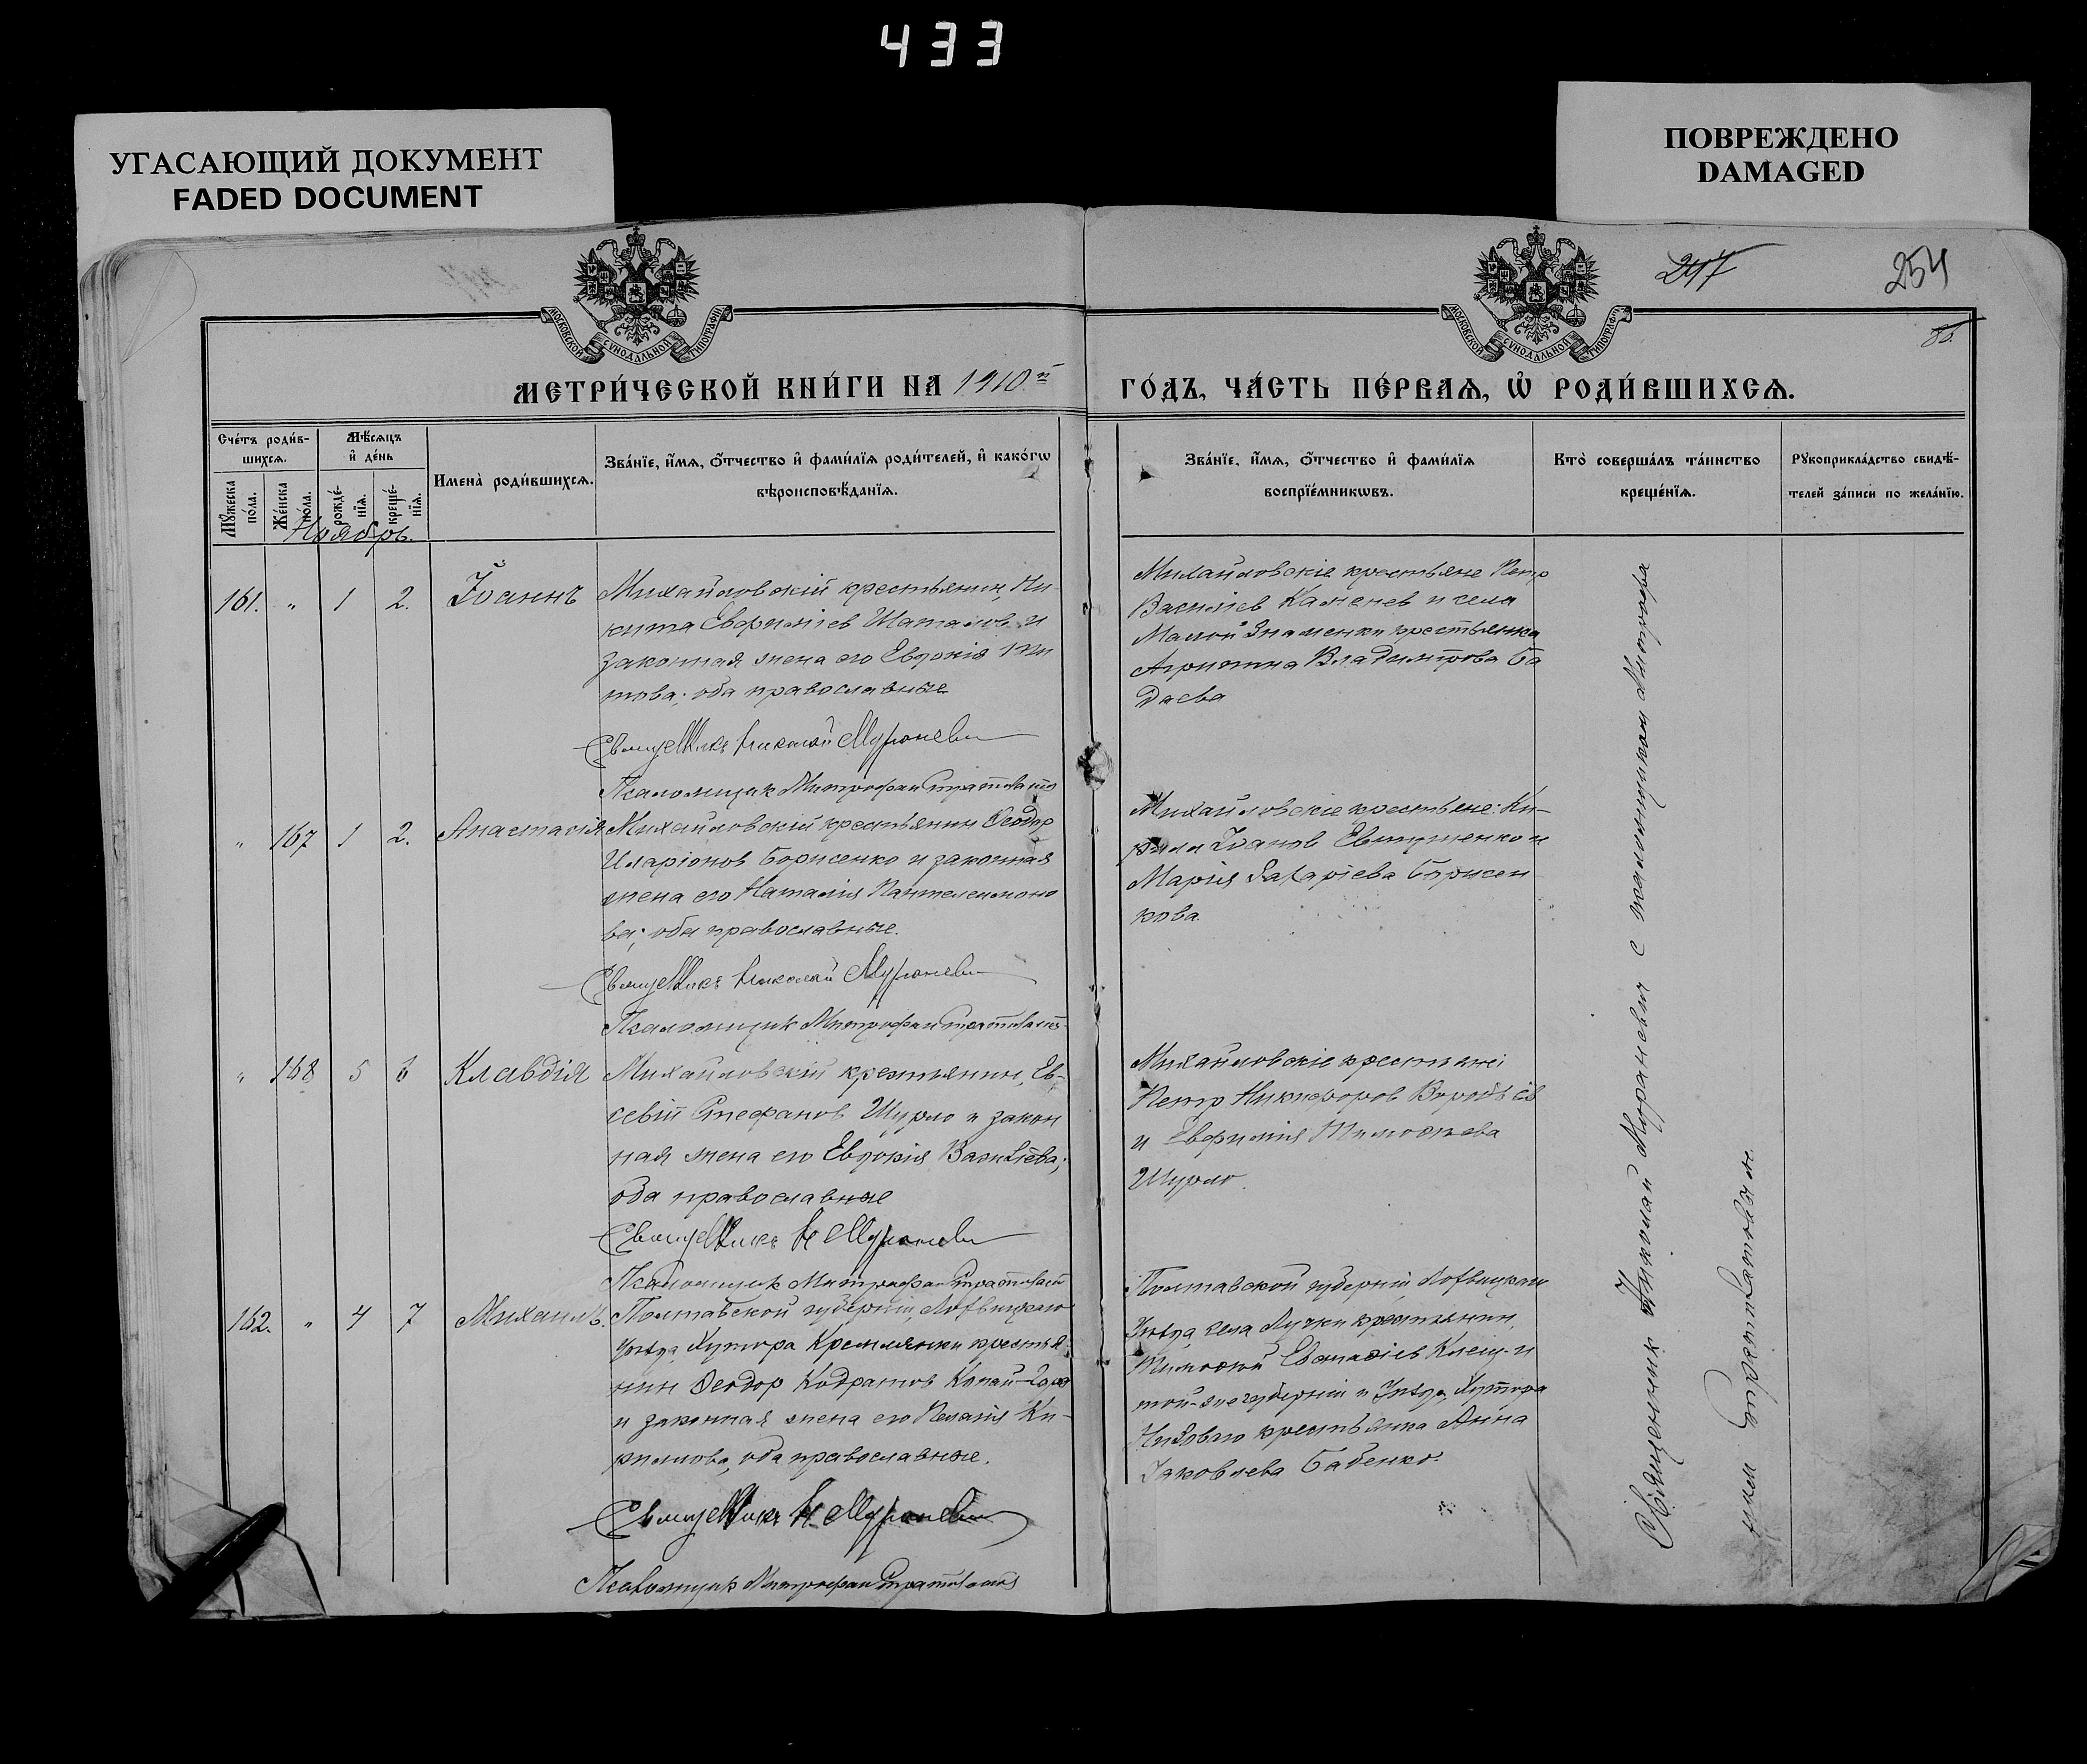 433
УГАСАЮЩИЙ ДОКУМЕНТ
FADED DOCUMENT
ПОВРЕЖДЕНО
DAMAGED
247
254
85.
МОСКОВСКОЙ СѴНОДАЛЬНОЙ ТИПОГРАФІИ
МОСКОВСКОЙ СѴНОДАЛЬНОЙ ТИПОГРАФІИ
МЕТРИ́ЧЕСКОЙ КНИ́ГИ НА 1910й ГО́ДЪ, ЧА́СТЬ ПЕ́РВАѦ, Ѽ РОДИ́ВШИХСѦ.
Сче́тъ роди́в-
шихсѧ.
Мѣ́сѧцъ
и҆ де́нь
Мꙋ́жеска
по́ла.
Же́нска
по́ла.
рожде́-
нїѧ.
креще́-
нїѧ.
Имена̀ роди́вшихсѧ.
Зва́нїе, и҆́мѧ, ѻ҆́тчество и҆ фами́лїѧ роди́телей, и҆ како́гѡ
вѣроисповѣ́данїѧ.
Зва́нїе, и҆́мѧ, ѻ҆́тчество и҆ фами́лїѧ
воспрїе́мникѡвъ.
Кто̀ соверша́лъ та́инство
креще́нїѧ.
Рꙋкоприкла́дство свидѣ́-
телей за́писи по жела́нїю.
Ноябрь.
161. " 1 2. Іоаннъ
Михайловскій крестьянин, Ни-
кита Евфиміев Шаталов и
законная жена его Евдокія Ти
това; оба православные
Священникъ Николай Мураневич
Псаломщик Митрофан
Михайловскіе крестьяне Петр
Василіев Каменев и села
Малой Знаменки крестьянка
Агрипина Владимірова Ба
даева
" 167 1 2. Анастасія
Михайловскій крестьянин Ѳеодор
Иларіонов Борисенко и законная
жена его Наталія Пантелеимоно
ва; оба православные.
Священникъ Николай Мураневич
Псаломщик Митрофан
Михайловскіе крестьяне: Ки-
рилл Іванов Евтушенко и
Марія Захаріева Борисен
кова.
" 168 5 6 Клавдія
Михайловскій крестьянин, Ев-
севій Стефанов Шурло и закон
ная жена его Евдокія Васильева;
оба православные
Священникъ Н Мураневич
Псаломщик Митрофан
Михайловскіе крестьяне:
Петр Никифоров
и Евфимія Тимофеева
Шурло.
162. " 4 7 Михаилъ.
Полтавской губерніи, Лохвицкаго
уѣзда, Хутора Кремлянки крестья
нин Ѳеодор Кодратов Копай-Гора
и законная жена его Пелагія Ки-
риллова, оба православные.
Священникъ Н. Мураневич
Псаломщик Митрофан
Полтавской губерніи Лохвицкаго
Уѣзда села Лучки крестьянин,
Тимофей Евстафіев Клещ и
той-же губерніи и Уѣзда, Хутора
Низоваго крестьянка Анна
Іаковлева Бабенко.
Священник Николай Мураневич с псаломщиком Митрофа
ном